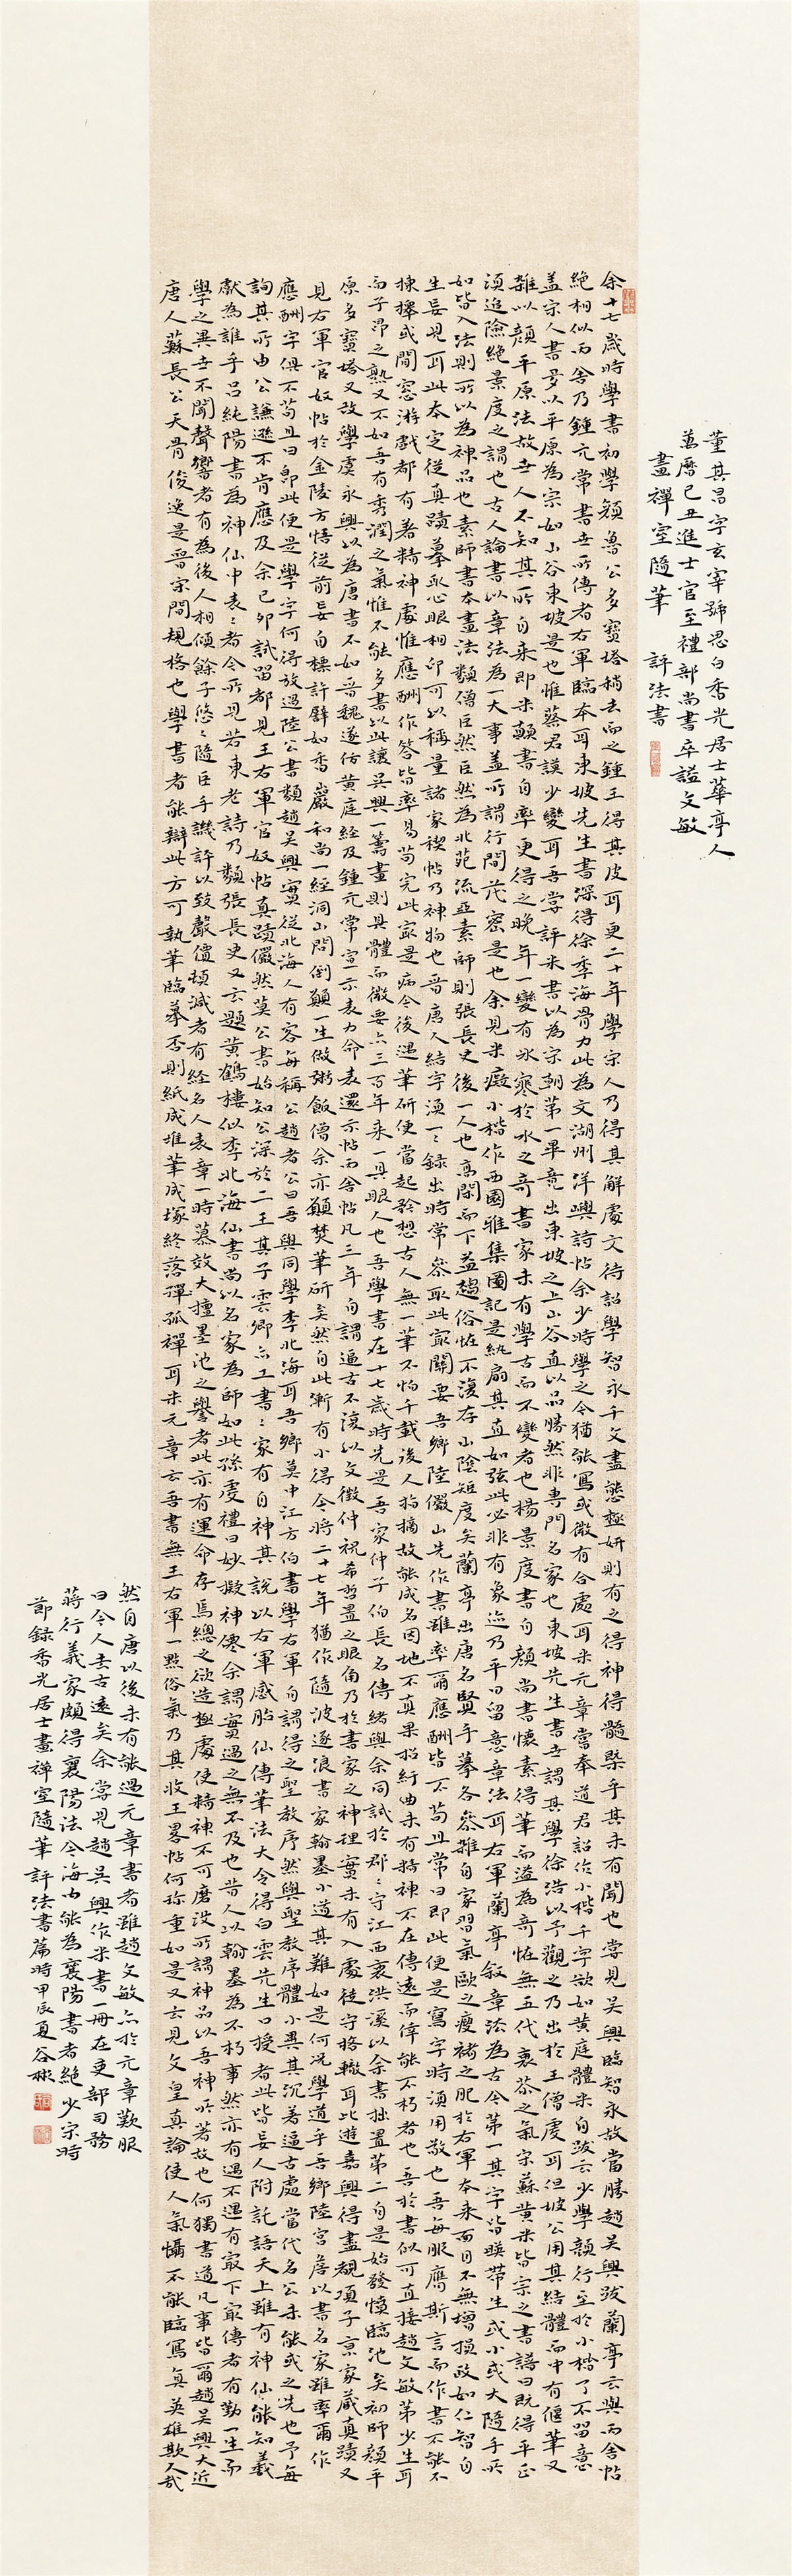 董其昌字玄宰號思白香光居士華亭人
萬曆己丑進士官至禮部尚書卒謚文敏
畫禪室隨筆 評法書
余十七歲時學書初學顏魯公多寶塔稍去而之鍾王得其皮耳更二十年學宗人乃得其解處文待詔學智永千文盡態極妍則有之得神得髓槩乎其未有聞也嘗見吳興臨智永故當勝趙吳興跋蘭亭云與丙舍帖
絕相似丙舍乃鍾元常書世所傳者右軍臨本耳東坡先生書深得徐季海骨力此為文湖州洋嶼詩帖余少時學之今猶能寫或微有合處耳米元章嘗奉道君詔作小楷千字欲如黃庭體米自跋云少學顏行至於小楷了不留意
蓋宗人書多以平原為宗如山谷東坡是也惟蔡君謨少變耳吾嘗評米書以為宋朝第一畢竟出東坡之上山谷直以品勝然非專門名家也東坡先生書世謂其學徐浩以予觀之乃出於王僧虔耳但坡公用其結體而中有偃筆又
雜以顏平原法故世人不知其所自來即米顛書自率更得之晚年一變有冰寒於水之奇書家未有學古而不變者也楊景度書自顏尚書懷素得筆而溢為奇恠無五代衰苶之氣宋蘇黃米皆宗之書譜曰既得平正
須追險絕景度之謂也古人論書以章法為一大事蓋所謂行間茂密是也余見米癡小楷作西園雅集圖記是紈扇其直如弦此必非有象迹乃平日留意章法耳右軍蘭亭叙章法為古今第一其字皆暎帶生或小或大隨手所
如皆入法則所以為神品也素師書本畫法類僧巨然巨然為北苑流亞素師則張長史後一人也高閑而下益趨俗恠不復存山陰矩度矣蘭亭出唐名賢手摹各參雜自家習氣歐之瘦褚之肥於右軍本來面目不無增損政如仁智自
生妄見耳此本定從真蹟摹取心眼相印可以稱量諸家禊帖乃神物也晉唐人結字須一一錄出時常參取此最關要吾鄉陸儼山先作書雖率爾應酬皆不苟且常曰即此便是寫字時須用敬也吾每服膺斯言而作書不能不
揀擇或閒窓游戲都有著精神處惟應酬作答皆率易苟完此最是病今後遇筆研便當起矜想古人無一筆不怕千載後人指摘故能成名因地不真果招紆曲未有精神不在傳遠而倖能不朽者也吾於書似可直接趙文敏第少生耳
而子昂之熟又不如吾有秀潤之氣惟不能多書以此讓吳興一籌畫則具體而微要亦三百年來一具眼人也吾學書在十七歲時先是吾家仲子伯長名傳緒與余同試於郡郡守江西衷洪溪以余書拙置第二自是始發憤臨池矣初師顏平
原多寶塔又改學虞永興以為唐書不如晉魏遂仿黃庭經及鍾元常宣示表力命表還示帖丙舍帖凡三年自謂逼古不復以文徵仲祝希哲置之眼角乃於書家之神理實未有入處徒守格轍耳比遊嘉興得盡覩項子京家藏真蹟又
見右軍官奴帖於金陵方悟從前妄自標許辟如香巖和尚一經洞山問倒願一生做粥飯僧余亦願焚筆研矣然自此漸有小得今將二十七年猶作隨波逐浪書家翰墨小道其難如是何況學道乎吾鄉陸宮詹以書名家雖率爾作
應酬字俱不苟且曰即此便是學字何得放過陸公書類趙吳興實從北海人有客每稱公趙者公曰吾與同學李北海耳吾鄉莫中江方伯書學右軍自謂得之聖教序然與聖教序體小異其沉著逼古處當代名公未能或之先也予每
詢其所由公謙遜不肯應及余己卯試留都見王右軍官奴帖真蹟儼然莫公書始知公深於二王其子雲卿亦工書書家有自神其說以右軍感胎仙傳筆法大令得白雲先生口授者此皆妄人附託語天上雖有神仙能知羲
獻為誰乎呂純陽書為神仙中表表者今所見若東老詩乃類張長史又云題黃鶴樓似李北海仙書尚以名家為師如此孫虔禮曰妙擬神僊余謂實過之無不及也昔人以翰墨為不朽事然亦有遇不遇有最下最傳者有勤一生而
學之異世不聞聲響者有為後人相傾餘子悠悠隨巨手譏評以致聲價頓減者有經名人表章一時慕效大擅墨池之譽者此亦有運命存焉總之欲造極處使精神不可磨沒所謂神品以吾神所著故也何獨書道凡事皆爾趙吳興大近
唐人蘇長公天骨俊逸是晉宋間規格也學書者能辯此方可執筆臨摹否則紙成堆筆成塚終落野狐禪耳米元章云吾書無王右軍一點俗氣乃其收王畧帖何珍重如是又云見文皇真論使人氣懾不能臨寫真英雄欺人哉
然自唐以後未有能過元章書者雖趙文敏亦於元章歎服
曰今人去古遠矣余嘗見趙吳興作米書一冊在吏部司務
蔣行義家頗得襄陽法今海內能為襄陽書者絕少宗時
節錄香光居士畫禪室隨筆評法書篇時甲辰夏谷彬